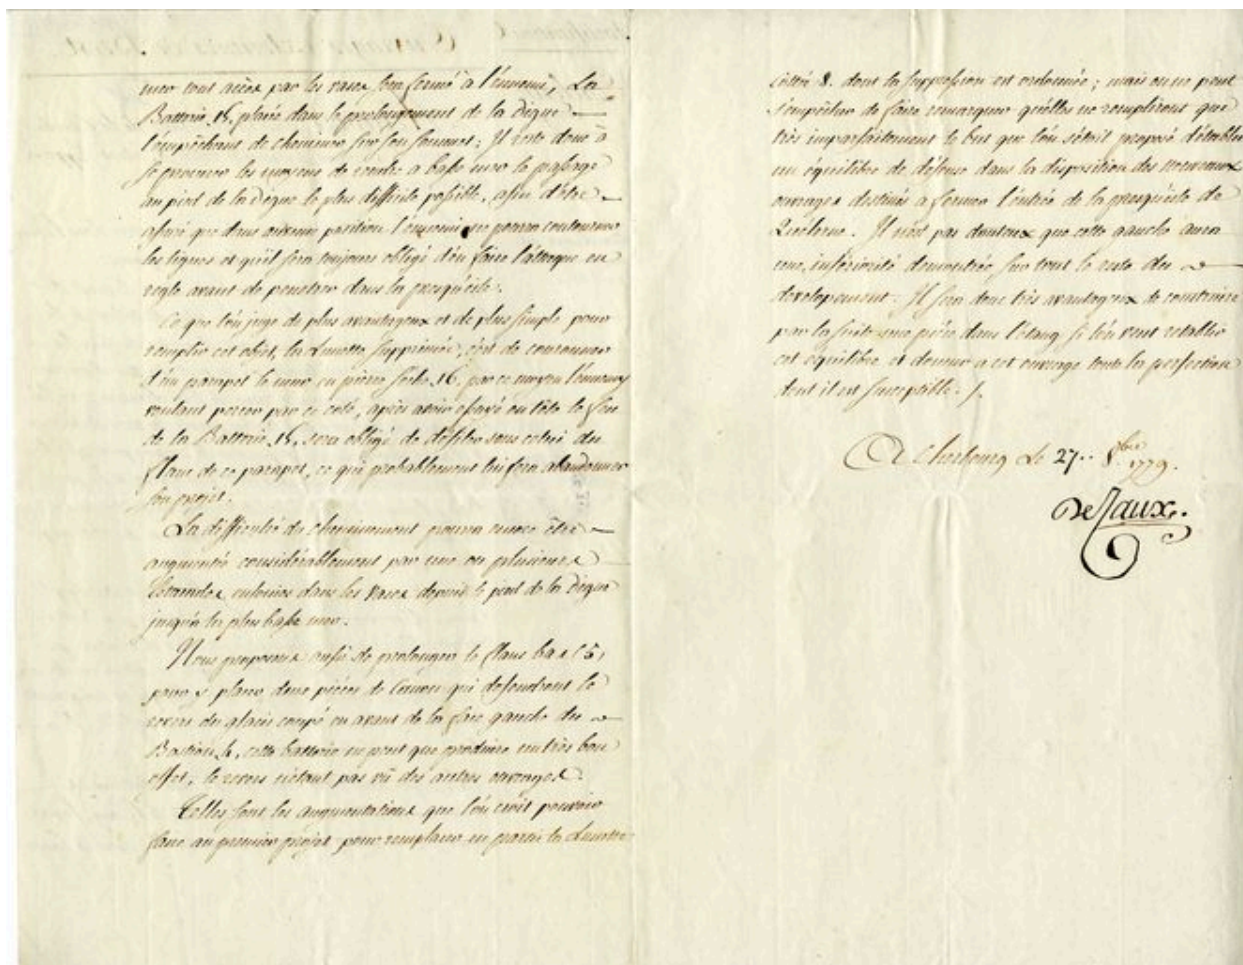 mer tout accès par les vases sera fermé à l'ennemi, La
Batterie, 15, placée dans le prolongement de la Digue
l'empêchant de cheminer sur son sommet; Il reste donc à
se procurer les moyens de rendre a basse mer le passage
au pied de la Digue le plus difficile possible, afin d'être
assuré que dans aucune position l'ennemi ne pourra contourner
les lignes et qu'il sera toujours obligé d'en faire l'attaque en
regle avant de penetrer dans la presqu'isle.
Ce que l'on juge de plus avantageux et de plus simple pour
remplir cet objet, la Lunette supprimée, c'est de couronner
d'un parapet le mur en pierre seche, 16, par ce moyen l'ennemy
voulant percer par ce coté, après avoir essuyé en tête le feu
de la Batterie, 15, sera obligé de défiler sous celui du
flanc de ce parapet, ce qui probablement lui fera abandonner
son projet.
La difficulté du cheminement pourra encore être
augmentée considérablement par une ou plusieurs
Estacades, enfoncées dans les vases depuis le pied de la Digue
jusqu'à la plus basse mer.
Nous proposons aussi de prolonger le flanc bas (5,
pour y placer deux pièces de Canon qui défendront le
revers du glacis coupé en avant de la face gauche du
Bastion, 4, cette batterie ne peut que produire un très bon
effet, le revers n'étant pas vû des autres ouvrages.
Telles sont les augmentations que l'on croit pouvoir
faire au premier projet pour remplacer en partie la Lunette
cottée 8. dont la suppression est ordonnée; mais on ne peut
s'empêcher de faire remarquer qu'elles ne rempliront que
très imparfaitement le but que l'on s'était proposé d'établir
un équilibre de défense dans la disposition des nouveaux
ouvrages destinés a fermer l'entrée de la presqu'isle de
Quélerne. Il n'est pas douteux que cette gauche aura
une infériorité demontrée sur tout le reste du
developement. Il sera donc très avantageux de construire
par la suite une pièce dans l'étang si l'on veut rétablir
cet équilibre et donner a cet ouvrage toute la perfection
dont il est susceptible. /.
A Cherbourg Le 27.. 8bre 1779.